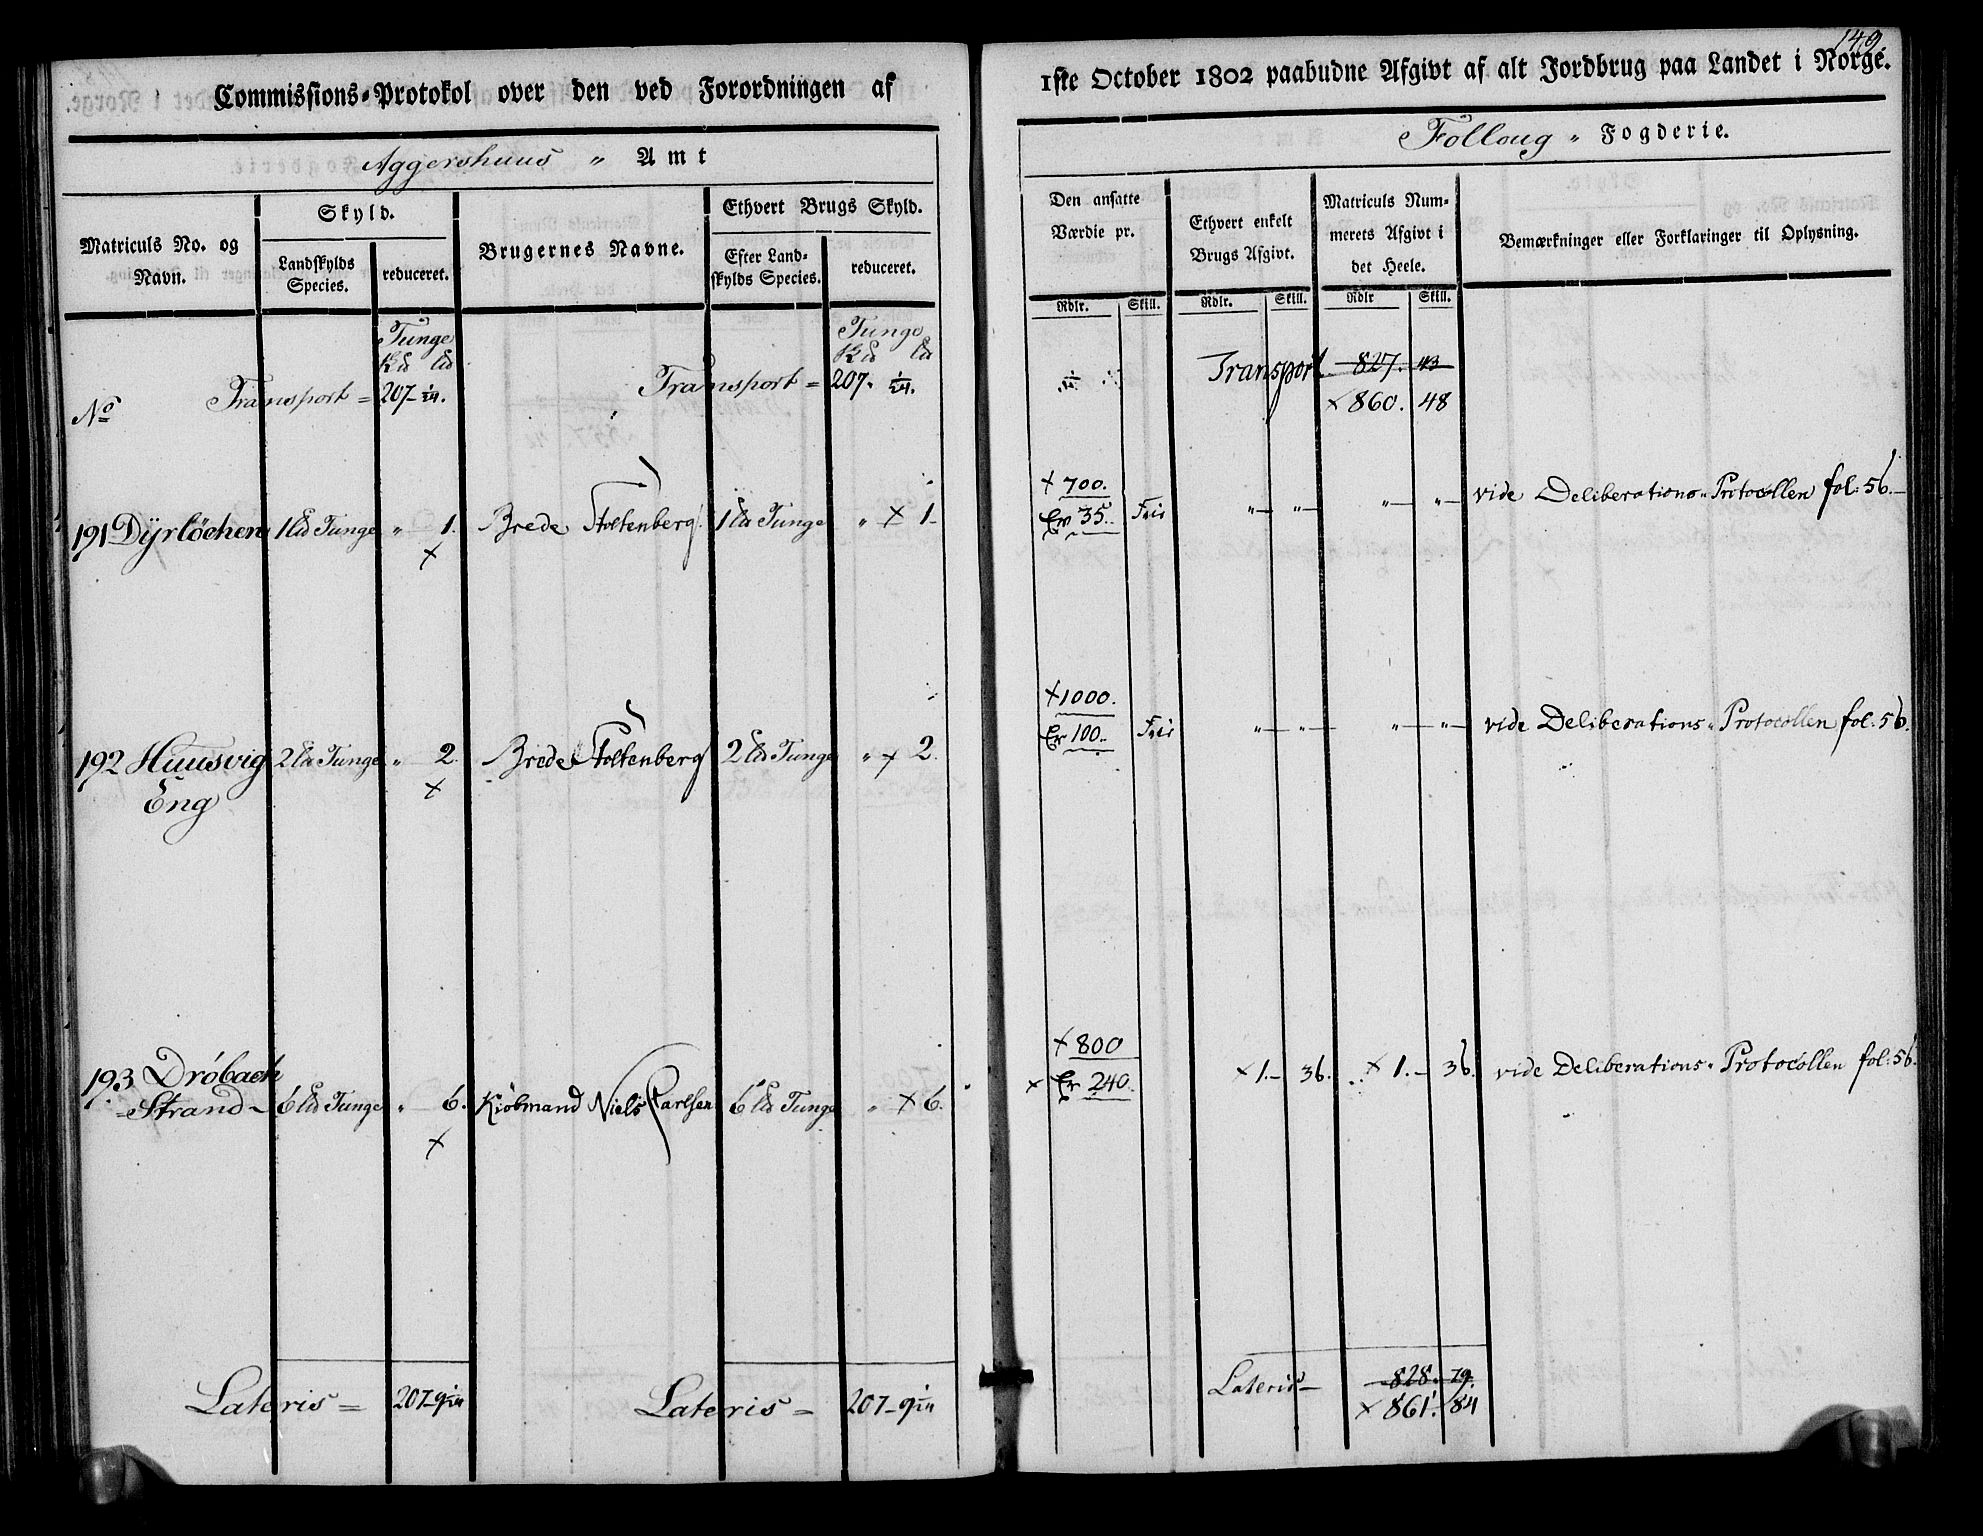 149.
Commissions-Protokol over den ved Forordningen af
1ste October 1802 paabudne Afgivt af alt Jordbrug paa Landet i Norge.
Aggershuus " Amt
Folloug " Fogderie.
Matriculs No. og Navn.
Skyld.
Landskylds Species.
reduceret.
Brugernes Navne.
Ethvert Brugs Skyld.
Efter Landskylds Species.
reduceret.
Den ansatte Værdie pr.
Ethvert enkelt Brugs Afgivt.
Matriculs Nummerets Afgivt i det Heele.
Bemærkninger eller Forklaringer til Oplysning.
Rdlr. Skill. Rdlr. Skill. Rdlr Skill.
Tunge Tunge
No Transport = 207- 1/24. Transport = 207- 1/24. Transport 827. 43
× 860. 48
× 700.
191 Dÿrlöchen 1 Ld Tunge " 1. Brede Stoltenberg 1 Ld Tunge " × 1. Er 35. Frie " " " " vide Deliberations-Protocollen fol: 56.
×
× 1000.
192 Huusvig 2 Ld Tunge " 2. Brede Stoltenberg 2 Ld Tunge " × 2. Er 100. Frie " " " " vide Deliberations-Protocollen fol: 56.
Eng ×
× 800
193 Dröbach
Strand 6 Ld Tunge " 6. Kiöbmand Niels Carlsen 6 Ld Tunge " × 6. × Er 240. × 1. 36. × 1. 36. vide Deliberations-Protocollen fol: 56.
×
Lateris = 207-9 1/24 Lateris = 207-9 1/24 Lateris 828. 79.
× 861. 84